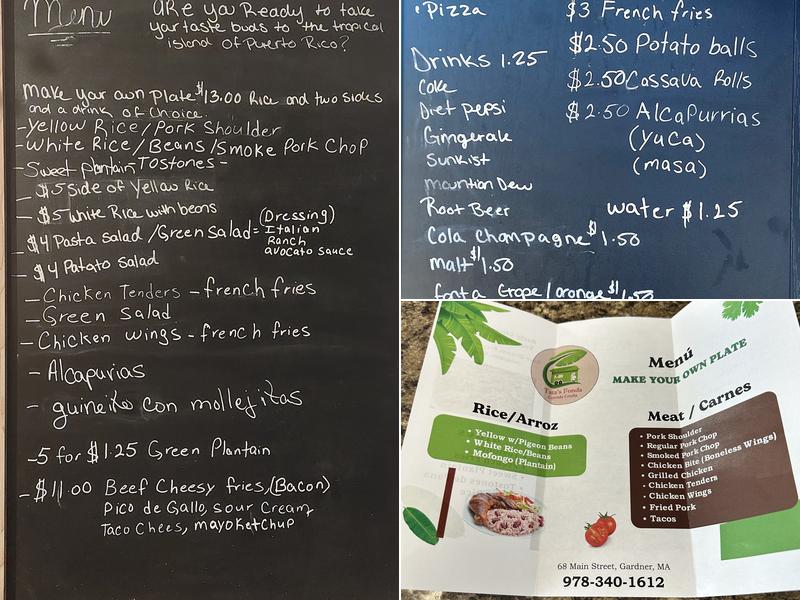 Menu
ARE you Ready to take
your taste buds to the tropical
island of Puerto Rico?
make your own plate $13.00 Rice and two sides
and a drink of choice.
-Yellow Rice/Pork Shoulder
-White Rice/Beans/Smoke Pork Chop
-Sweet plantain Tostones-
- $5 side of Yellow Rice
- $5 white Rice with beans
- $4 Pasta salad /Green salad= (Dressing)
Italian
Ranch
avocato sauce
- $4 Patato salad
-Chicken Tenders -french fries
-Green salad
-Chicken wings -french fries
- Alcapurias
- guineito con mollejitas
-5 for $1.25 Green Plantain
-$11.00 Beef Cheesy fries,(Bacon)
Pico de Gallo, sour Cream
Taco Chees, mayoketchup
•Pizza
Drinks 1.25
Coke
Diet pepsi
Gingerale
Sunkist
mountian Dew
Root Beer
Cola champagne $1.50
malt $1.50
fanta Grape/orange $1.50
$3 French fries
$2.50 Potato balls
$2.50 Cassava Rolls
$2.50 AlcaPurrias
(yuca)
(masa)
water $1.25
Tata's Fonda
Comida Criolla
Menú
MAKE YOUR OWN PLATE
Rice/Arroz
• Yellow w/Pigeon Beans
• White Rice/Beans
• Mofongo (Plantain)
Meat / Carnes
• Pork Shoulder
• Regular Pork Chop
• Smoked Pork Chop
• Chicken Bite (Boneless Wings)
• Grilled Chicken
• Chicken Tenders
• Chicken Wings
• Fried Pork
• Tacos
68 Main Street, Gardner, MA
978-340-1612